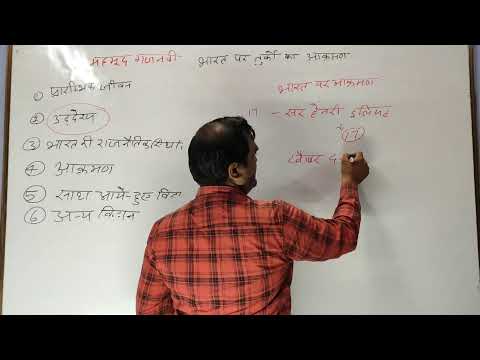 महमूद गजनवी - भारत पर तुर्को का आक्रमण
① प्रारम्भिक जीवन
② उद्देश्य
③ भारत की राजनैतिक स्थिति
④ आक्रमण
⑤ साथ आये हुए
⑥ अन्य
भारत पर आक्रमण
17 - सर हेनरी इलियट
17
खैबर द